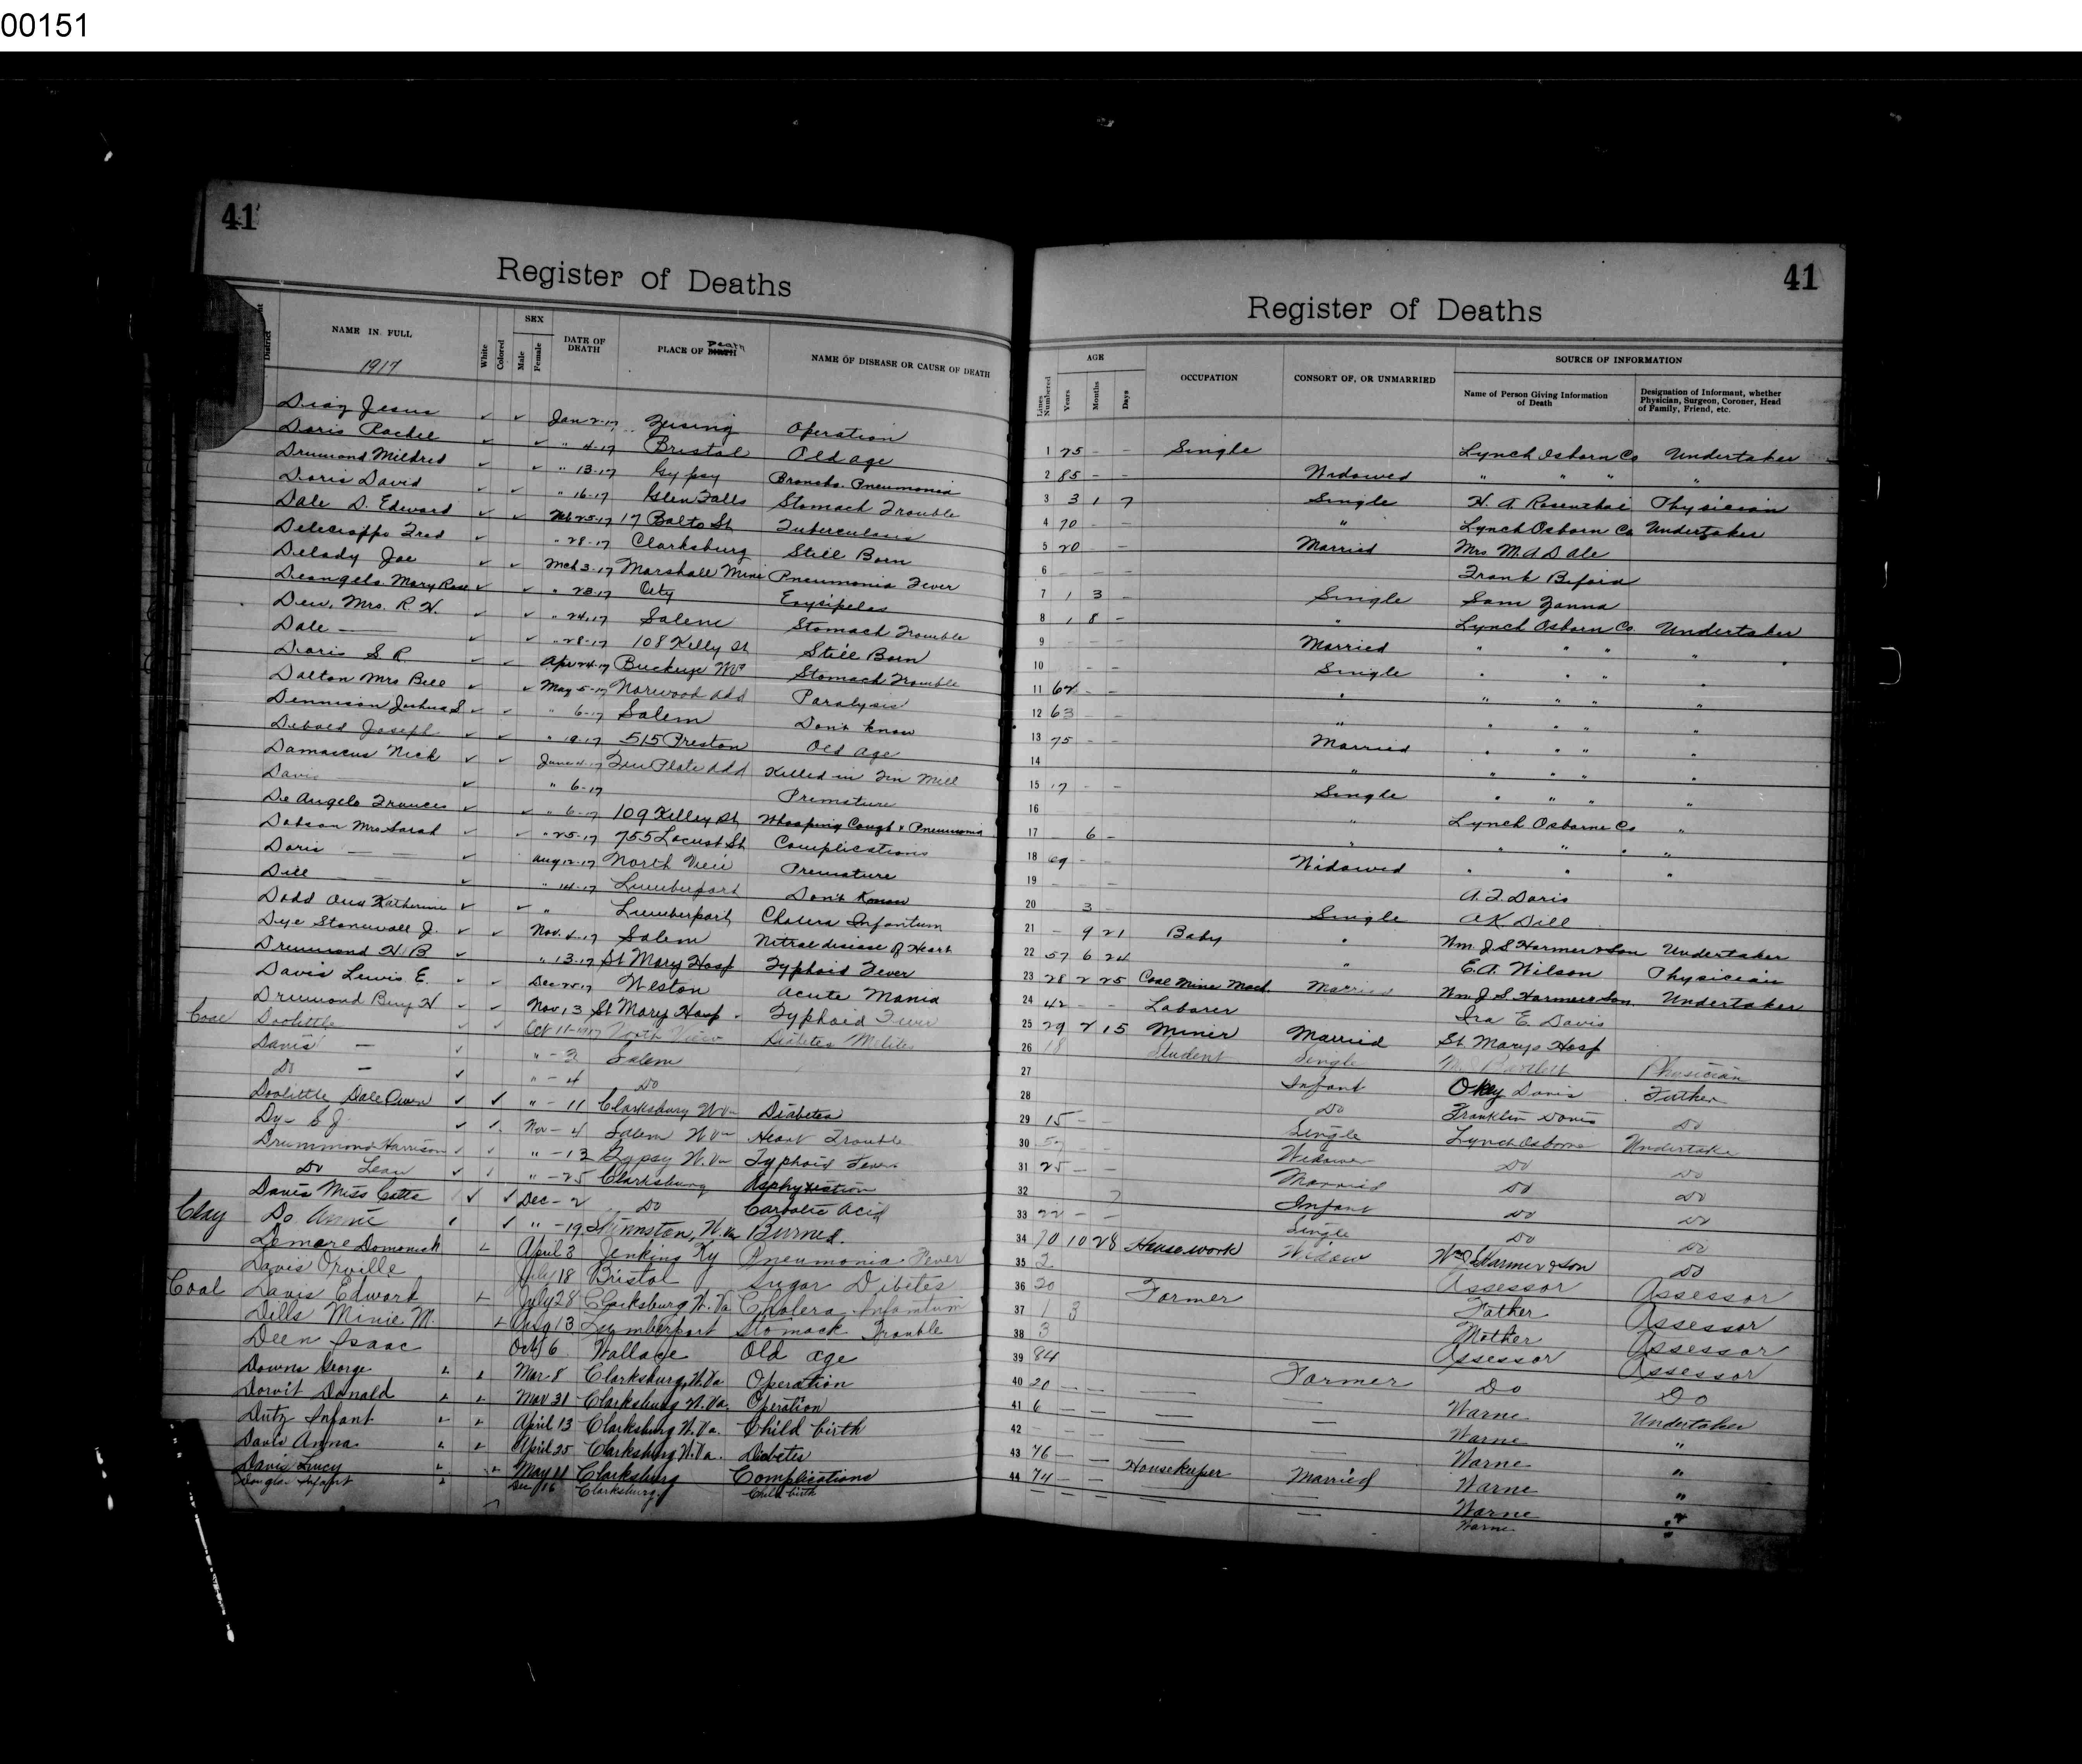 00151
41
Register of Deaths
District
NAME IN FULL
1917
White
Colored
SEX
Male
Female
DATE OF DEATH
PLACE OF BIRTH Death
NAME OF DISEASE OR CAUSE OF DEATH
Diaz Jesus Jan 2-17 Zeising Operation
Davis Rachel " 4-17 Bristol Old age
Drumond Mildred " 13-17 Gypsy Broncho. Pneumonia
Davis David " 16-17 Glen Falls Stomach Trouble
Dale D. Edward Feb 25-17 17 Balto St Tuberculosis
Fred " 28-17 Clarksburg Still Born
Delady Joe Mch 3-17 Marshall Mine Pneumonia Fever
Deangelo Mary Rose " 23-17 City Erysipelas
Dew, Mrs. R. H. " 24-17 Salem Stomach Trouble
Dale — " 28-17 108 Kelly St Still Born
Davis S. R. Apr 24-17 Buckeye Stomach Trouble
Dalton Mrs Bell May 5-17 Norwood Add Paralysis
Dennison Joshua S " 6-17 Salem Don't Know
Debold Joseph " 19-17 515 Preston Old Age
Damascus Nick June 4-17 Tin Plate Add Killed in Tin Mill
Davis — " 6-17 Premature
De Angelo Frances " 6-17 109 Kelley St Whooping Cough & Pneumonia
Dobson Mrs Sarah " 25-17 755 Locust St Complications
Davis — — Aug 12-17 North View Premature
Dill — — " 14-17 Lumberport Don't Know
Dodd Katherine " Lumberport Cholera Infantum
Dye Stonewall J. Nov. 4-17 Salem Mitral disease of Heart
Drummond H. B " 13-17 St Mary Hosp Typhoid Fever
Davis Lewis E. Dec 25-17 Weston Acute Mania
Drumond Benj H Nov, 13 St Mary Hosp. Typhoid Fever
Coal Doolittle Oct 11-1917 North View Diabetes Melites
Davis — " - 3 Salem
Do — " - 4 Do
Doolittle Dale Owen " - 11 Clarksburg W Va Diabetes
Dye S J Nov - 4 Salem W Va Heart Trouble
Drummond Harrison " - 13 Gypsy W. Va Typhoid Fever
Do Lean " - 25 Clarksburg Asphyxiation
Davis Miss Catte Dec - 2 Do Carbolic Acid
Clay Do Annie " - 19 Shinnston, W. Va Burned.
Demare Domenick April 3 Jenkins Ky Pneumonia Fever
Davis Orville July 18 Bristol Sugar Dibites
Coal Davis Edward July 28 Clarksburg W. Va Cholera Infantum
Dills Minie M. Aug 13 Lumberport Stomack Trouble
Deen Isaac Oct 6 Wallace Old age
Downs George Mar 8 Clarksburg, W. Va Operation
Donald Mar 31 Clarksburg W. Va. Operation
Dutz Infant April 13 Clarksburg W. Va. Child birth
Davis Anna April 25 Clarksburg W. Va. Diabetes
Davis Lucy May 11 Clarksburg Complications
Infant Dec 16 Clarksburg Child birth
41
Register of Deaths
Lines Numbered
AGE
Years
Months
Days
OCCUPATION
CONSORT OF, OR UNMARRIED
SOURCE OF INFORMATION
Name of Person Giving Information of Death
Designation of Informant, whether Physician, Surgeon, Coroner, Head of Family, Friend, etc.
1 75 - - Single Lynch Osborn Co Undertaker
2 85 - - Widowed " " " "
3 3 1 7 Single H. A. Rosenthal Physician
4 70 - - " Lynch Osborn Co Undertaker
5 20 - Married Mrs M. A Dale
6 - - - Frank
7 1 3 - Single Sam Zanna
8 1 8 - " Lynch Osborn Co. Undertaker
9 - - - Married " " " "
10 - - Single " " " "
11 62 - - " " " " "
12 63 - - " " " " "
13 75 - - Married " " " "
14 " " " " "
15 17 - - Single " " " "
16 " Lynch Osborne Co "
17 6 - " " " " "
18 69 - - Widowed " " "
19 - - A. F. Davis
20 3 - Single A K Dill
21 - 9 21 Baby " Wm. J. S Harmer & Son Undertaker
22 57 6 24 " E. A. Wilson Physician
23 28 2 25 Coal Mine Mach. Married Wm J. S Harmer & Son. Undertaker
24 42 - - Laborer Ira E. Davis
25 29 2 15 Miner Married St. Marys Hosp
26 18 Student Single Bartlett Physician
27 Infant Okey Davis Father
28 Do Franklin Davis Do
29 15 - - Single Lynch Osborne Undertake
30 57 Widower Do Do
31 25 - - Married Do Do
32 7 Infant Do Do
33 22 - - Single Do Do
34 70 10 28 Housework Widow Wm J S Harmer & Son Do
35 2 Assessor Assessor
36 20 Farmer Father Assessor
37 1 3 Mother Assessor
38 3 Assessor Assessor
39 84 Farmer Do Do
40 20 — — — — Warne Undertaker
41 6 — — — — Warne "
42 — — — — Warne "
43 76 — — Housekeeper Married Warne "
44 74 — — — — Warne "
— — — — — Warne "